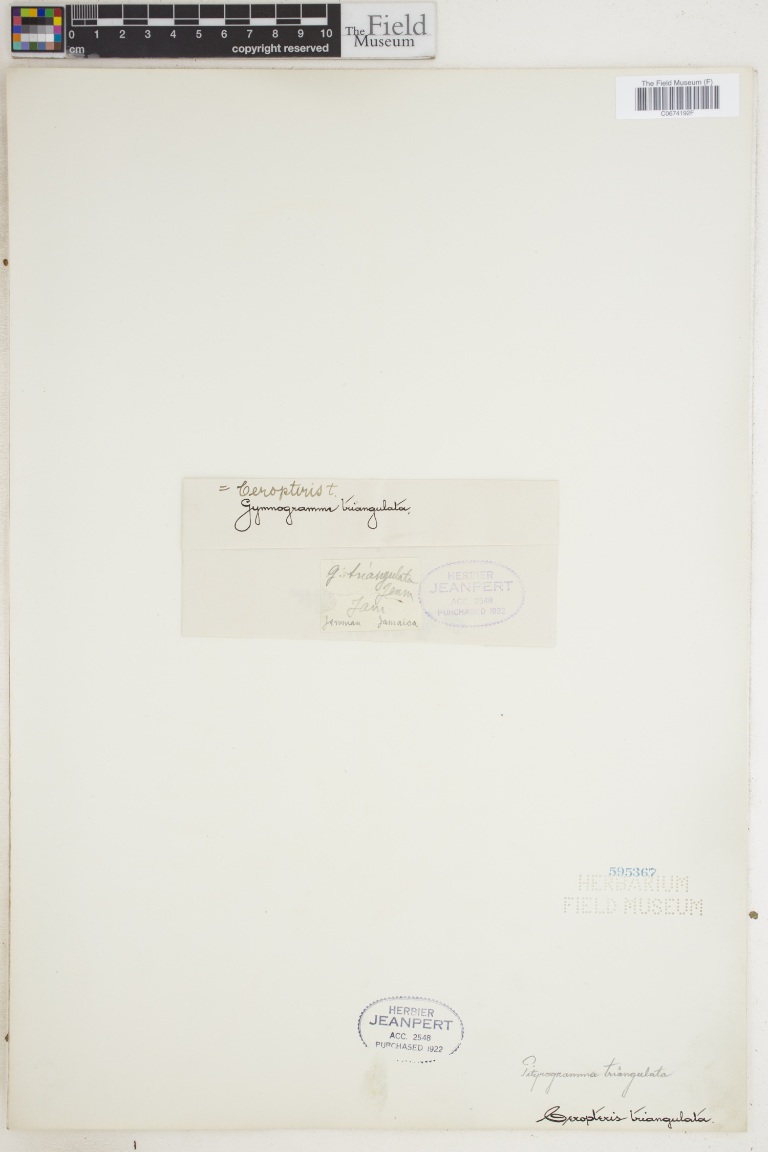 0 1 2 3 4 5 6 7 8 9 10
cm
copyright reserved
The Field
Museum
The Field Museum (F)
C0674192F
= Ceropteris t.
Gymnogramme triangulata.
G. triangulata
Jenm
Jam.
Jenman Jamaica
HERBIER
JEANPERT
ACC. 2548
PURCHASED 1922
595367
HERBARIUM
FIELD MUSEUM
HERBIER
JEANPERT
ACC. 2548
PURCHASED 1922
Pityrogramma triangulata
Ceropteris triangulata.